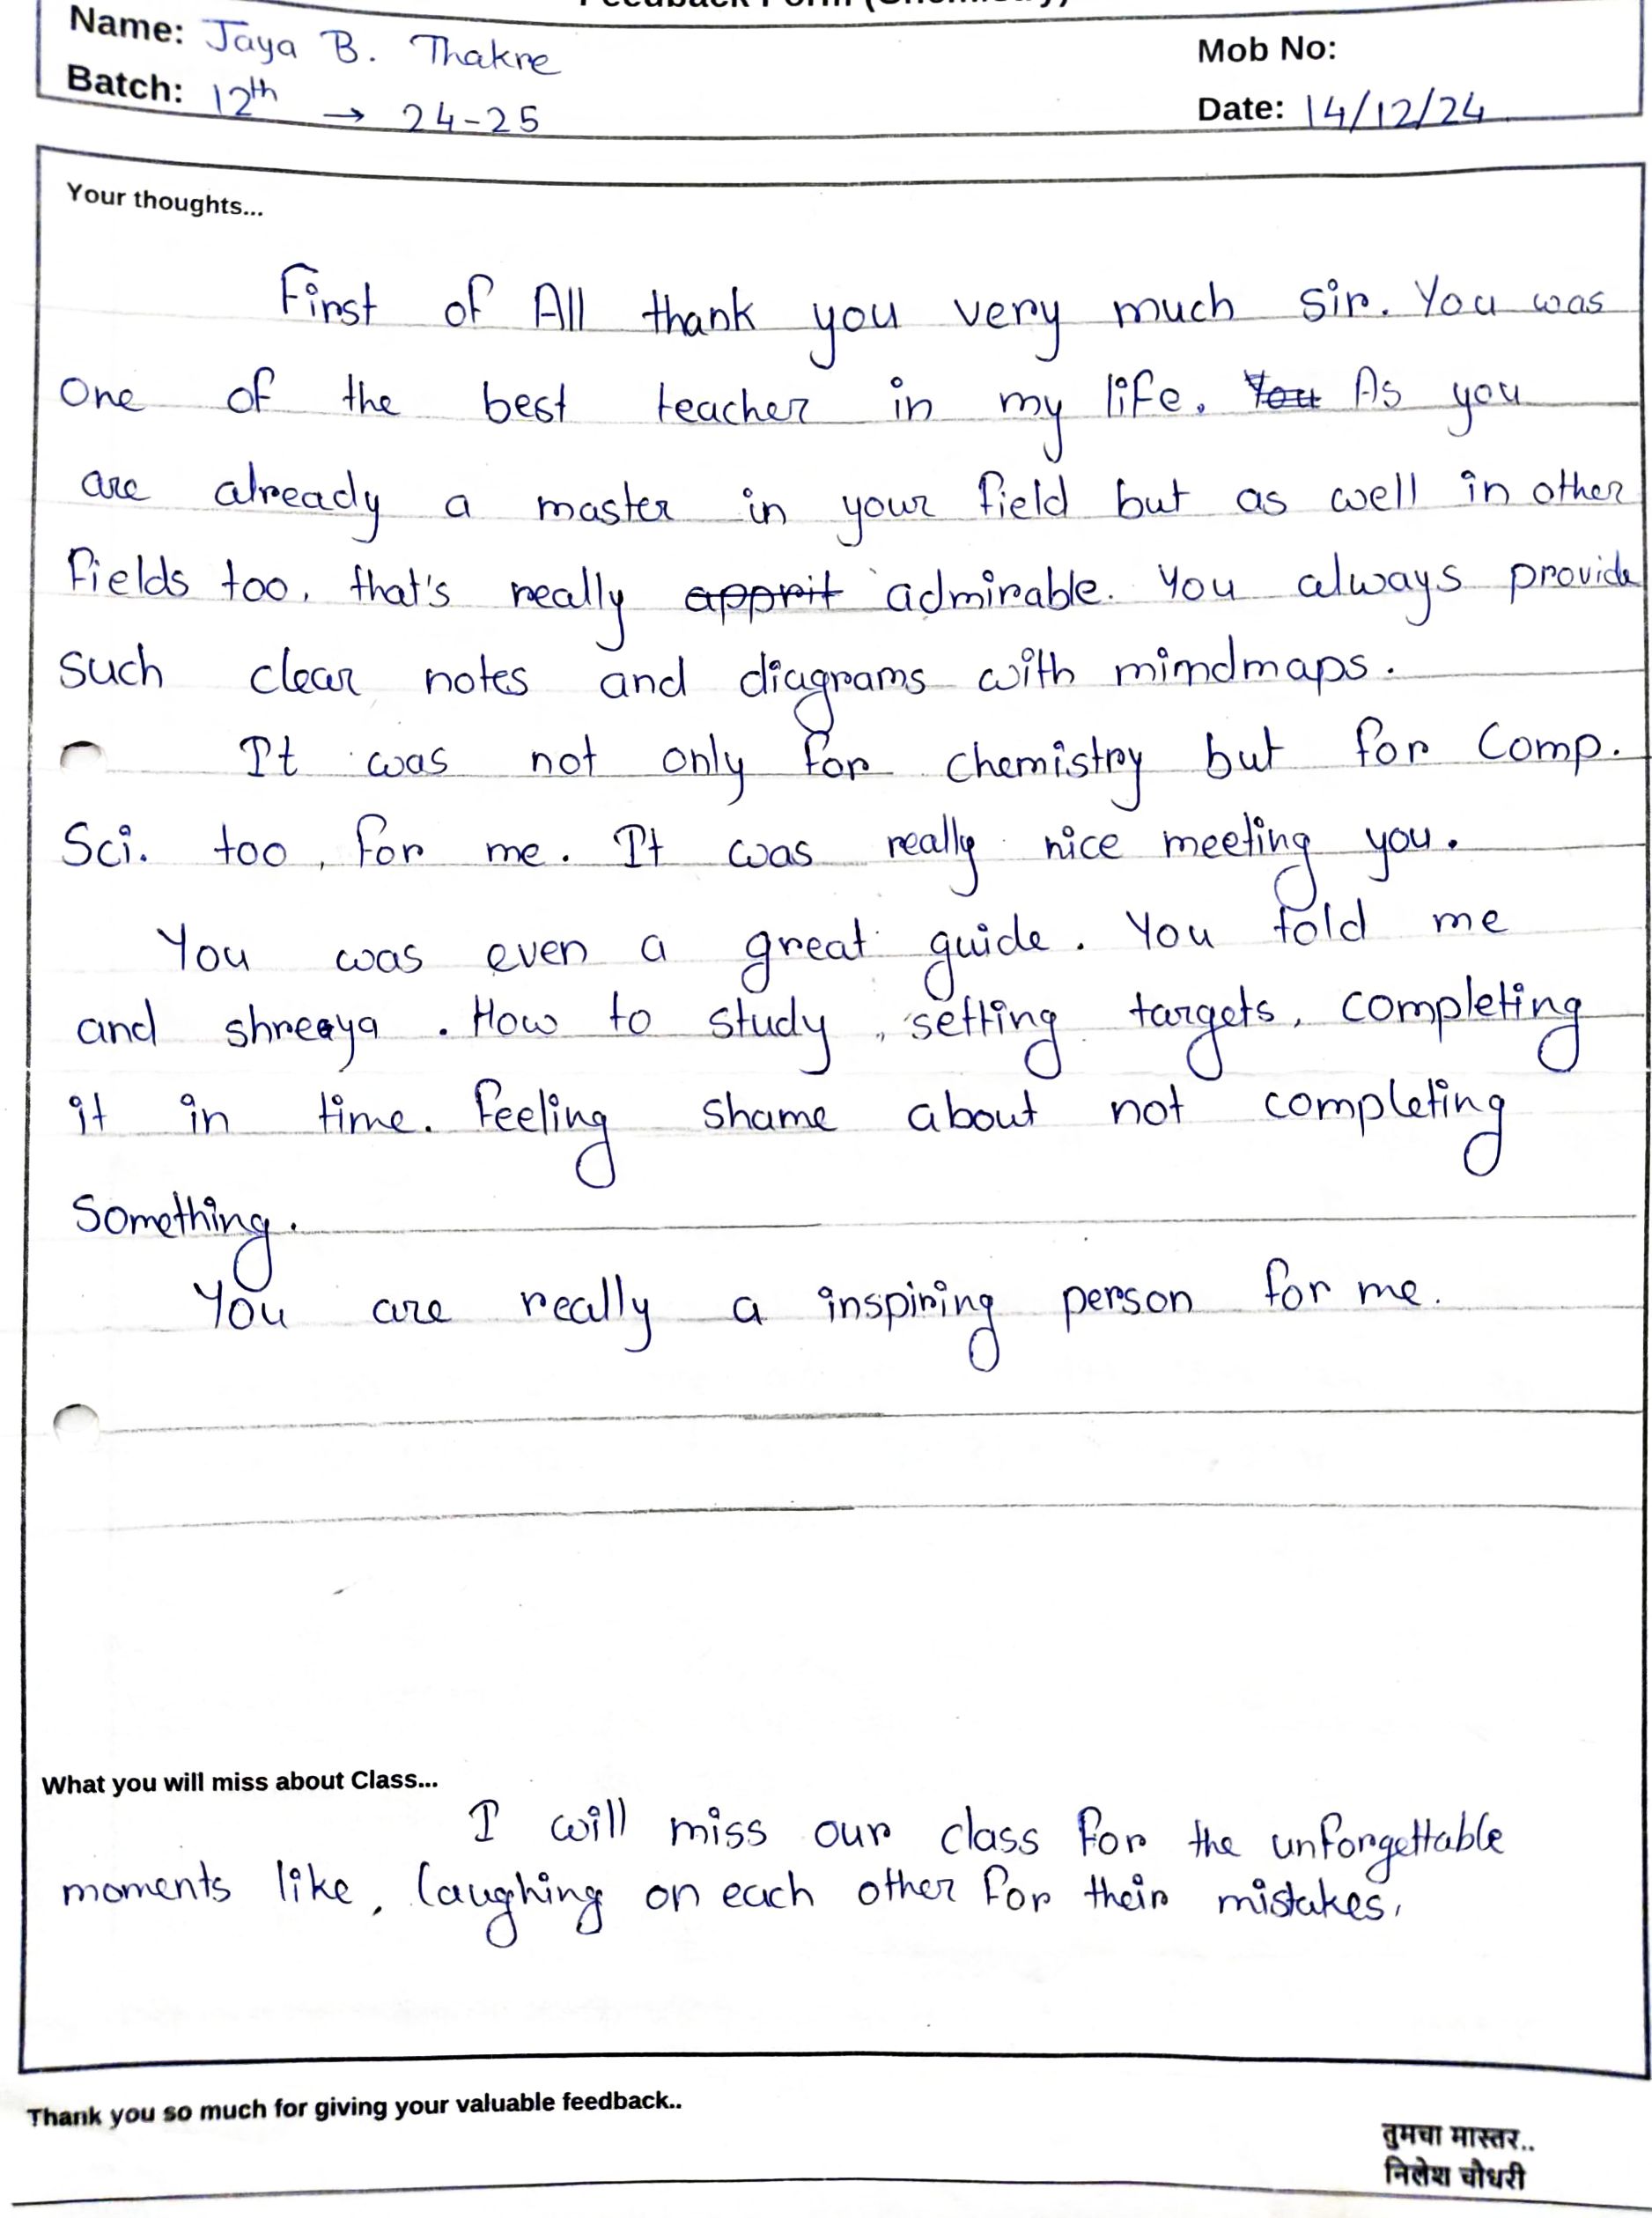 Feedback Form (Chemistry)
Name: Jaya B. Thakre
Mob No:
Batch: 12th → 24-25
Date: 14/12/24
Your thoughts...
First of All thank you very much sir. You was
one of the best teacher in my life. You As you
are already a master in your field but as well in other
fields too, that's really apprit admirable. You always provide
such clear notes and diagrams with mindmaps.
It was not only for chemistry but for Comp.
Sci. too, for me. It was really nice meeting you.
You was even a great guide. You told me
and shreeya . How to study, setting targets, completing
it in time. Feeling shame about not completing
Something.
You are really a inspiring person for me.
What you will miss about Class...
I will miss our class for the unforgettable
moments like, laughing on each other for their mistakes,
Thank you so much for giving your valuable feedback..
तुमचा मास्तर..
निलेश चौधरी